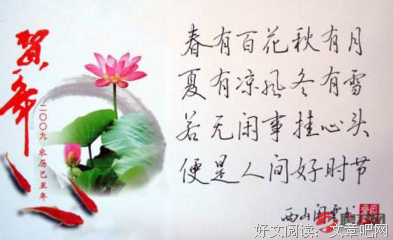 贺年
二〇〇九 农历己丑年
春有百花秋有月
夏有凉风冬有雪
若无闲事挂心头
便是人间好时节
西山闲
好文阅读：文章吧网